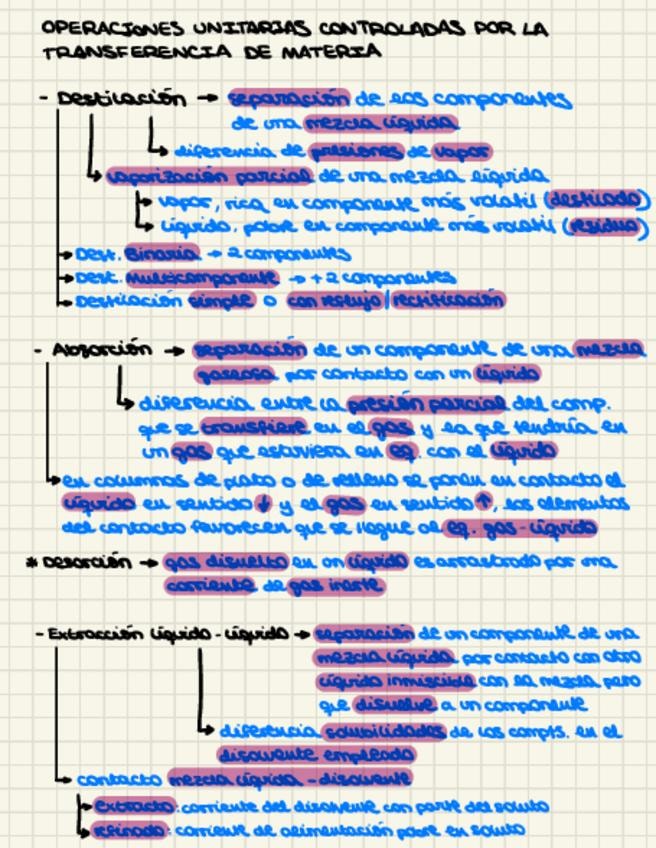 OPERACIONES UNITARIAS CONTROLADAS POR LA
TRANSFERENCIA DE MATERIA
- Destilación → separación de los componentes
de una mezcla líquida
diferencia de presiones de vapor
vaporización parcial de una mezcla líquida
vapor, rica en componente más volatil (destilado)
líquido, pobre en componente más volatil (residuo)
Dest. Binaria → 2 componentes
Dest. Multicomponente → +2 componentes
Destilación simple o con reflujo/rectificación
- Absorción → separación de un componente de una mezcla
gaseosa por contacto con un líquido
diferencia entre la presión parcial del comp.
que se transfiere en el gas y la que tendría en
un gas que estuviera en eq. con el líquido
en columnas de plato o de relleno se ponen en contacto el
líquido en sentido ↓ y el gas en sentido ↑, los elementos
del contacto favorecen que se llegue al eq. gas-líquido
* Desorción → gas disuelto en un líquido es arrastrado por una
corriente de gas inerte
- Extracción líquido-líquido → separación de un componente de una
mezcla líquida por contacto con otro
líquido inmiscible con la mezcla pero
que disuelve a un componente
diferencia solubilidades de los compts. en el
disolvente empleado
contacto mezcla líquida - disolvente
extracto: corriente del disolvente con parte del soluto
refinado: corriente de alimentación pobre en soluto